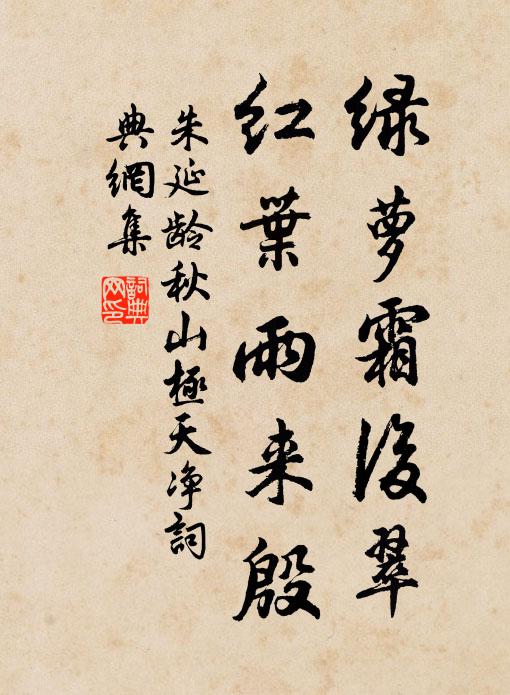 绿萝霜後翠
红葉雨来殷
朱延龄秋山極天净詞
典網集
詞典网印